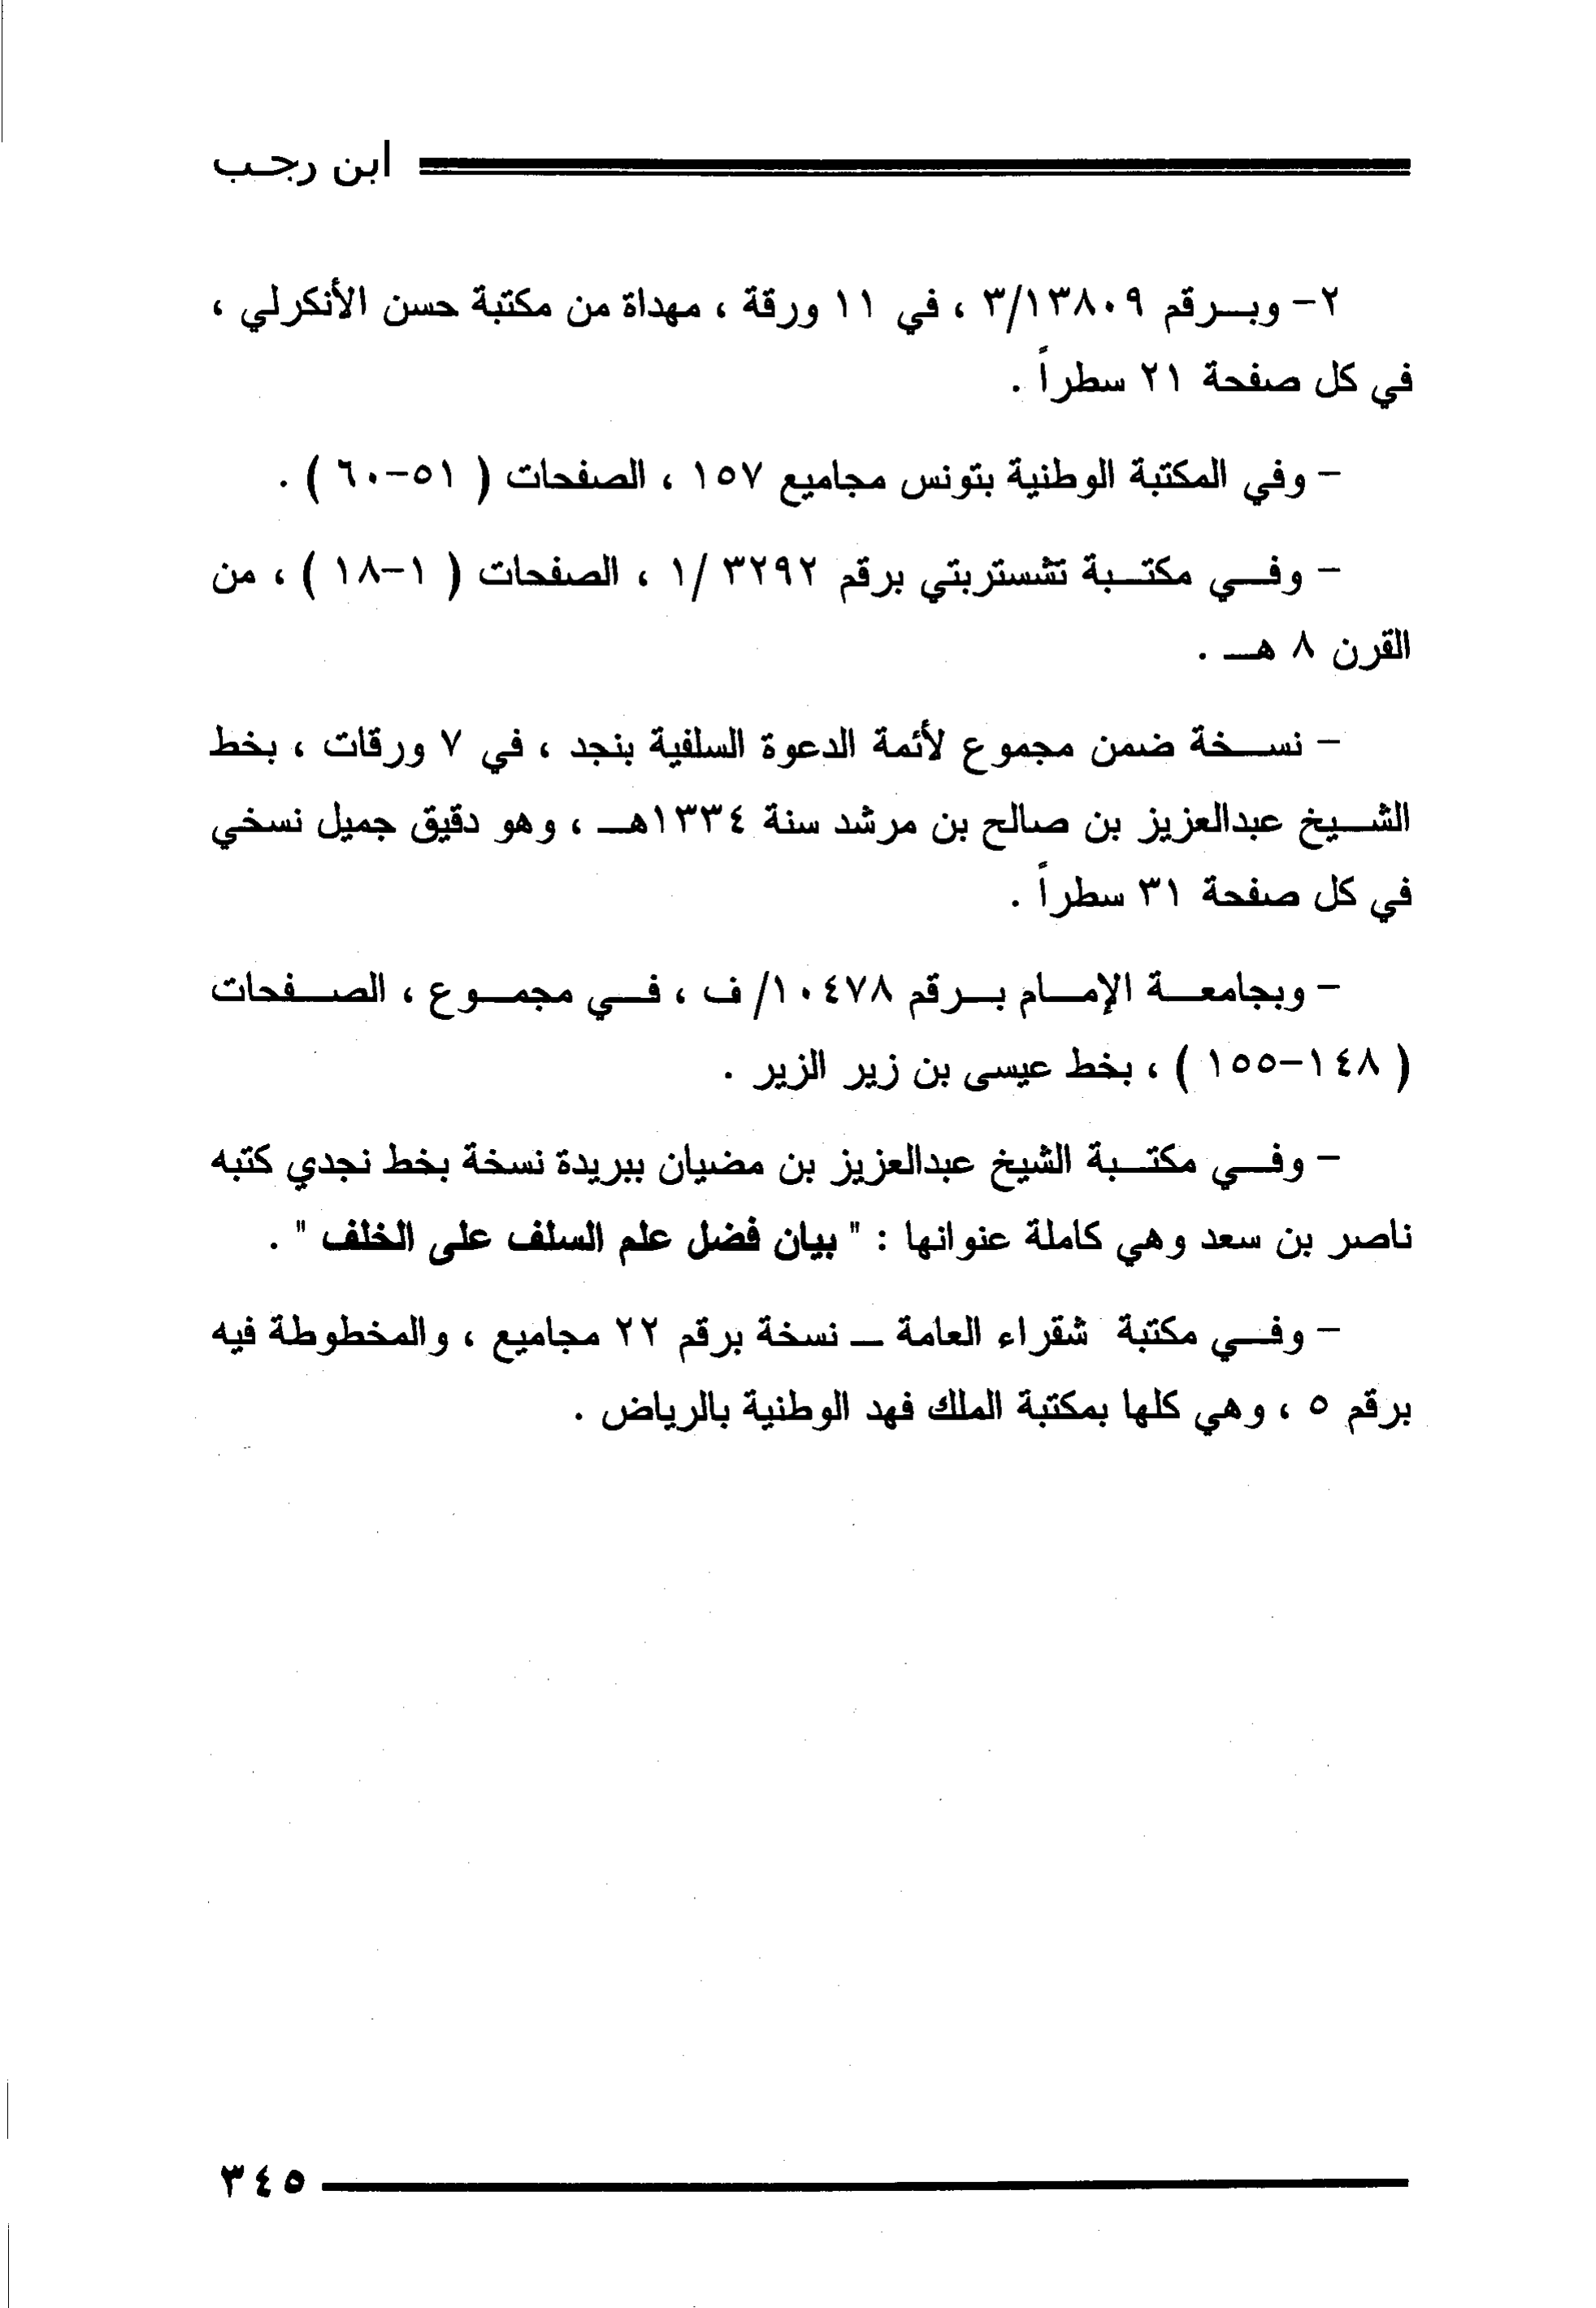 ابن رجب
٢- وبرقم ٣/١٣٨٠٩ ، في ١١ ورقة ، مهداة من مكتبة حسن الأنكرلي ،
في كل صفحة ٢١ سطراً .
- وفي المكتبة الوطنية بتونس مجاميع ١٥٧ ، الصفحات ( ٥١-٦٠ ) .
- وفي مكتبة تشستربتي برقم ٣٢٩٢ /١ ، الصفحات ( ١-١٨ ) ، من
القرن ٨ هـ .
- نسخة ضمن مجموع لأئمة الدعوة السلفية بنجد ، في ٧ ورقات ، بخط
الشيخ عبدالعزيز بن صالح بن مرشد سنة ١٣٣٤هـ ، وهو دقيق جميل نسخي
في كل صفحة ٣١ سطراً .
- وبجامعة الإمام برقم ١٠٤٧٨/ ف ، في مجموع ، الصفحات
( ١٤٨-١٥٥ ) ، بخط عيسى بن زير الزير .
- وفي مكتبة الشيخ عبدالعزيز بن مضيان ببريدة نسخة بخط نجدي كتبه
ناصر بن سعد وهي كاملة عنوانها : " بيان فضل علم السلف على الخلف " .
- وفي مكتبة شقراء العامة ــ نسخة برقم ٢٢ مجاميع ، والمخطوطة فيه
برقم ٥ ، وهي كلها بمكتبة الملك فهد الوطنية بالرياض .
٣٤٥